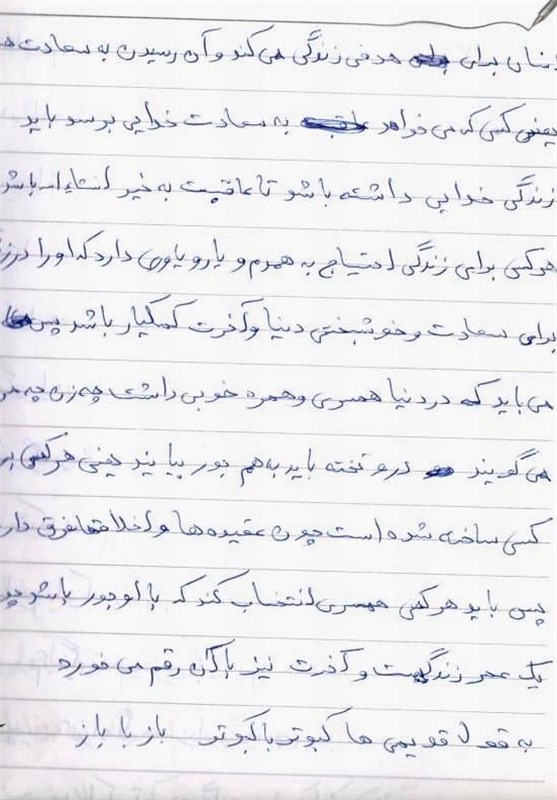 انسان برای هدفی زندگی می کند و آن رسیدن به سعادت
یعنی کسی که می خواهد به سعادت خدایی برسد باید
زندگی خدایی داشته باشد تا عاقبت به خیر انشاءاله باشد
هر کس برای زندگی احتیاج به همدم و یار و یاوری دارد که او را در
برای سعادت و خوشبختی دنیا و آخرت کمکیار باشد پس
می باید که در دنیا همسری و همره خوبی داشت چه زن چه
می گویند در و تخته باید به هم جور بیایند یعنی هر کسی
کسی ساخته شده است چون عقیده ها و اخلاقها فرق
پس باید هر کس همسری انتخاب کند که با او جور باشد
یک عمر زندگیست و آخرت نیز با آن رقم می خورد
به قول قدیمی ها کبوتر با کبوتر باز با باز